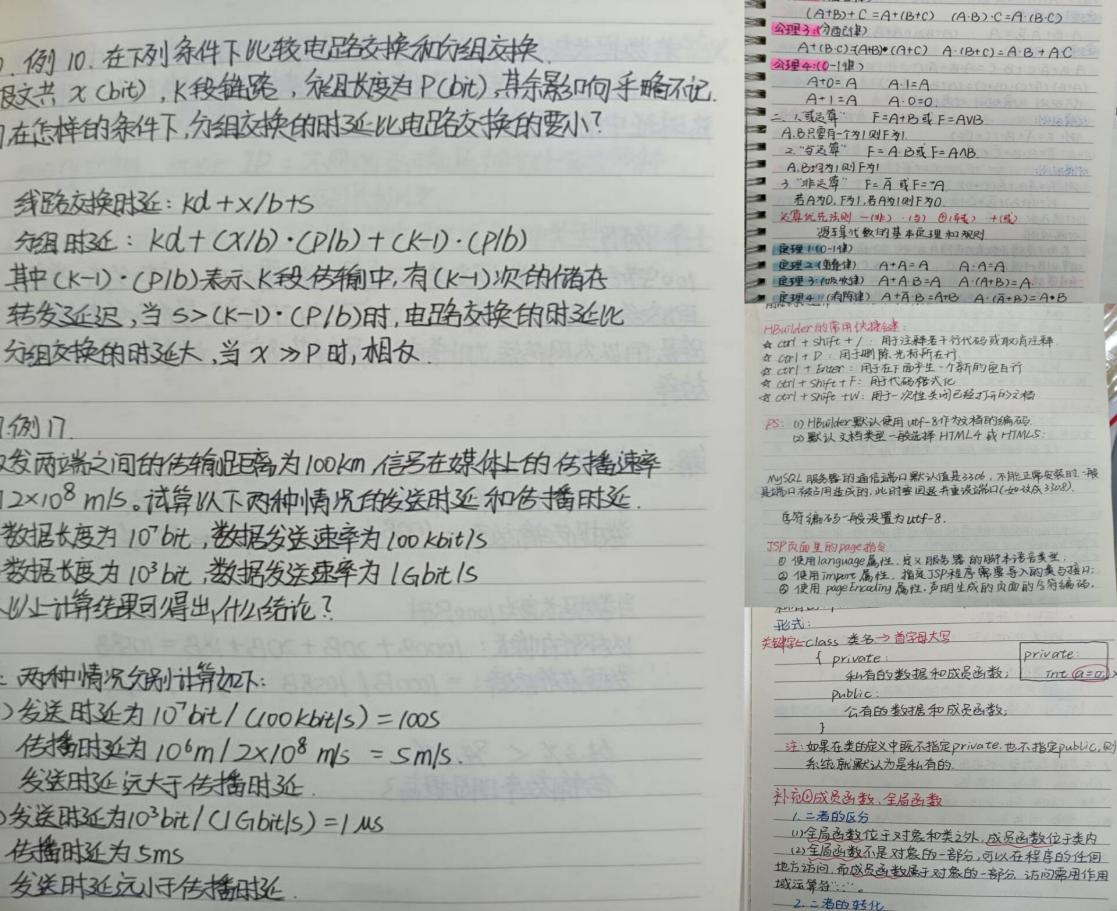 例10. 在下列条件下比较电路交换和分组交换.
报文共 x (bit), K段链路, 分组长度为P(bit), 其余影响乎略不记.
问在怎样的条件下,分组交换的时延比电路交换的要小?
线路交换时延: kd+x/b+s
分组时延: kd+(x/b)·(P/b)+(K-1)·(P/b)
其中(K-1)·(P/b)表示K段传输中,有(K-1)次的储存
转发延迟,当S>(K-1)·(P/b)时,电路交换的时延比
分组交换的时延大,当x≫P时,相反.
例17.
收发两端之间的传输距离为100km,信号在媒体上的传播速率
12×10⁸ m/s。试算以下两种情况的发送时延和传播时延.
数据长度为10⁷bit,数据发送速率为100kbit/s
数据长度为10³bit,数据发送速率为1Gbit/s
以上计算结果可得出什么结论?
: 两种情况分别计算如下:
)发送时延为10⁷bit/(100kbit/s)=100s
传播时延为10⁶m/2×10⁸ m/s =5m/s.
发送时延远大于传播时延.
)发送时延为10³bit/(1Gbit/s)=1μs
传播时延为5ms
发送时延远小于传播时延.
(A+B)+C=A+(B+C) (A·B)·C=A·(B·C)
公理3:(分配律)
A+(B·C)=(A+B)·(A+C) A·(B+C)=A·B+A·C
公理4:(0-1律)
A+0=A A·1=A
A+1=A A·0=0.
二. 1."或运算" F=A+B或F=A∨B
A.B只要有一个为1则F为1.
2."与运算" F=A·B或F=A∧B
A.B均为1则F为1
3."非运算" F=Ā 或F=¬A
若A为0,F为1,若A为1则F为0.
运算优先法则 —(非) ·(与) ⊕(异或) +(或)
逻辑代数的基本定理和规则
定理1:(0-1律)
定理2:(重叠律) A+A=A A·A=A
定理3:(吸收律) A+A·B=A A·(A+B)=A
定理4 (消除律) A+Ā·B=A+B A·(Ā+B)=A·B
HBuilder的常用快捷键:
☆ ctrl+shift+/: 用于注释若干行代码或取消注释.
☆ ctrl+D: 用于删除光标所在行.
☆ ctrl+Enter: 用于在下面产生一个新的空白行
☆ ctrl+Shift+F: 用于代码格式化
☆ ctrl+shift+W: 用于一次性关闭已经打开的文档
PS: (1) HBuilder默认使用utf-8作为文档的编码.
(2) 默认文档类型一般选择HTML4或HTML5.
MySQL服务器的通信端口默认值是3306,不能正常安装时,一般
是端口被占用造成的,此时要回退并重设端口(如设成3308).
字符编码一般设置为utf-8.
JSP页面里的page指令
① 使用language属性,定义服务器的脚本语言类型;
② 使用import属性,指定JSP程序需要导入的类与接口;
③ 使用pageEncoding属性,声明生成的页面的字符编码.
形式:
关键字←class 类名→首字母大写
{ private:
私有的数据和成员函数;
public:
公有的数据和成员函数;
}
private:
int a=0;
注: 如果在类的定义中既不指定private,也不指定public,则
系统就默认为是私有的.
补充①成员函数、全局函数
1.二者的区分
(1)全局函数位于对象和类之外,成员函数位于类内
(2)全局函数不是对象的一部分,可以在程序的任何
地方访问,而成员函数属于对象的一部分 访问需用作用
域运算符"::"。
2.二者的转化